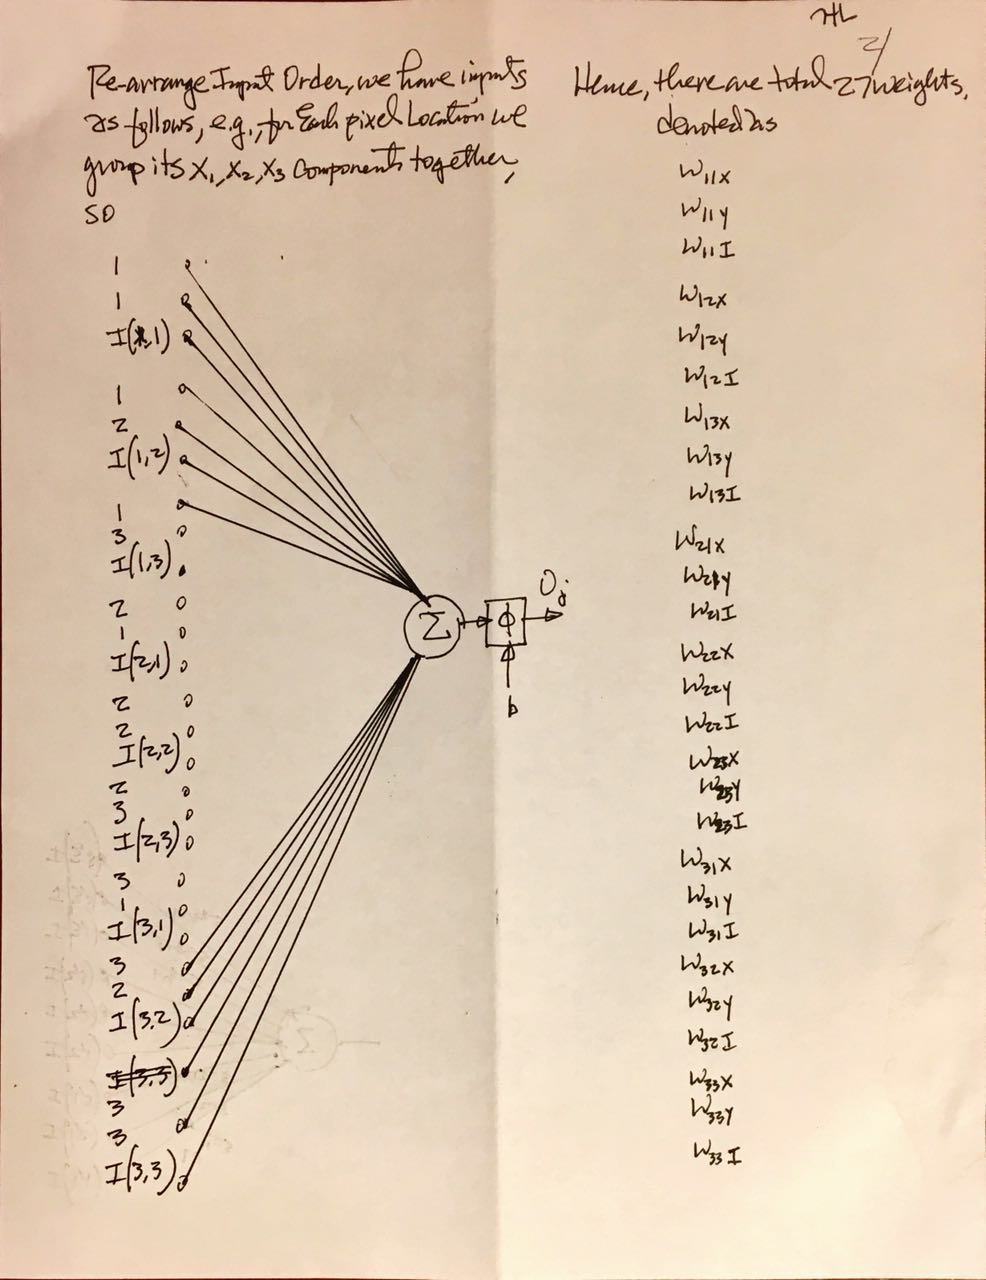 HL
2/
Re-arrange Input Order, we have inputs
as follows, e.g., for Each pixel Location we
group its X1, X2, X3 Components together,
so
1
1
I(1,1)
1
2
I(1,2)
1
3
I(1,3)
2
1
I(2,1)
2
2
I(2,2)
2
3
I(2,3)
3
1
I(3,1)
3
2
I(3,2)
I(3,3)
3
3
I(3,3)
Σ
ϕ
Oj
b
Hence, there are total 27 weights,
denoted as
W11X
W11Y
W11I
W12X
W12Y
W12I
W13X
W13Y
W13I
W21X
W21Y
W21I
W22X
W22Y
W22I
W23X
W23Y
W23I
W31X
W31Y
W31I
W32X
W32Y
W32I
W33X
W33Y
W33I